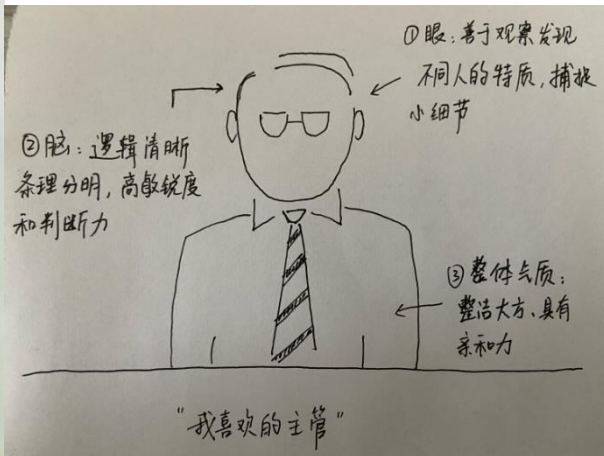 ①眼：善于观察发现
不同人的特质，捕捉
小细节
②脑：逻辑清晰
条理分明，高敏锐度
和判断力
③整体气质：
整洁大方、具有
亲和力
"我喜欢的主管"